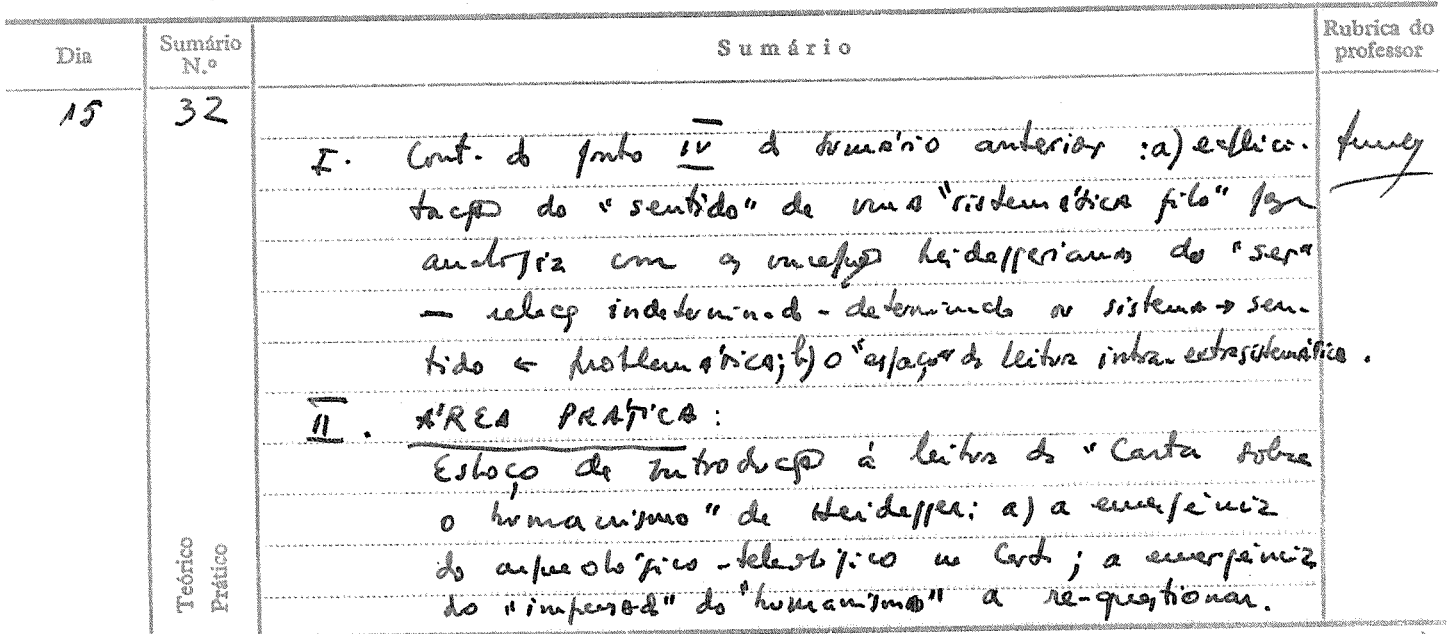 Dia Sumário N.º Sumário Rubrica do professor
15 32
I. Cont. do ponto IV do sumário anterior : a) explici-
tação do "sentido" de uma "sistemática filo" por
analogia com a concepção heideggeriana do "ser"
— relação indeterminado - determinado ou sistema → sen-
tido ← problemática; b) o "espaço" da leitura intra-extrasistemática.
II. ÁREA PRÁTICA:
Esboço de introdução à leitura da "Carta sobre
o humanismo" de Heidegger: a) a emergência
do arqueológico-teleológico na Carta; a emergência
do "impensado" do "humanismo" a re-questionar.
Teórico
Prático